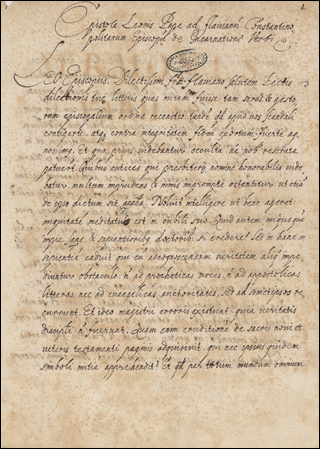 Epistola Leonis Pape ad flavianū Constantino
politanum Episcopū de Incarnatione Verbi
Leo Episcopus. Dilectissimo fri flaviano salutem Lectis
dilectionis tue litteris quas miramur fuisse tam seras & gesto
rum episcopalium ordine recensito tandē qd apud vos scandali
contigisset. atq, contra integritatem fidei exortum fuerit ag
novimus. Et qua prius videbantur occulta nō nob reserata
patuerūt. Quibus eutices qui presbiterij nomine honorabilis vide
batur. multum imprudens & nimis imperitus ostenditur. ut etiā
de eipso dictum sit apħeta. Noluit intelligere ut bene ageret:
iniquitatē meditatus est in cubili suo. Quid autem iniquius quā
impie sapere & sapientioribus doctoribusq. nō credere? Sed in hanc in
sipientiā cadunt qui cū adcognoscendam veritatem aliquo impe
diuntur obstaculo. nō ad propheticas voces nō ad apostolicas
litteras. nec ad euangelicas auctoritates. sed ad semetipsos re
currunt. Et ideo magistri erroris existunt. quia veritatis
discipuli nō fuerunt. Quam enim
de sacris novi et
veteris testamenti paginis adquisivit. qui nec ipsius quidem
simboli initia apprehendit? Et qd per totum mundum omnium